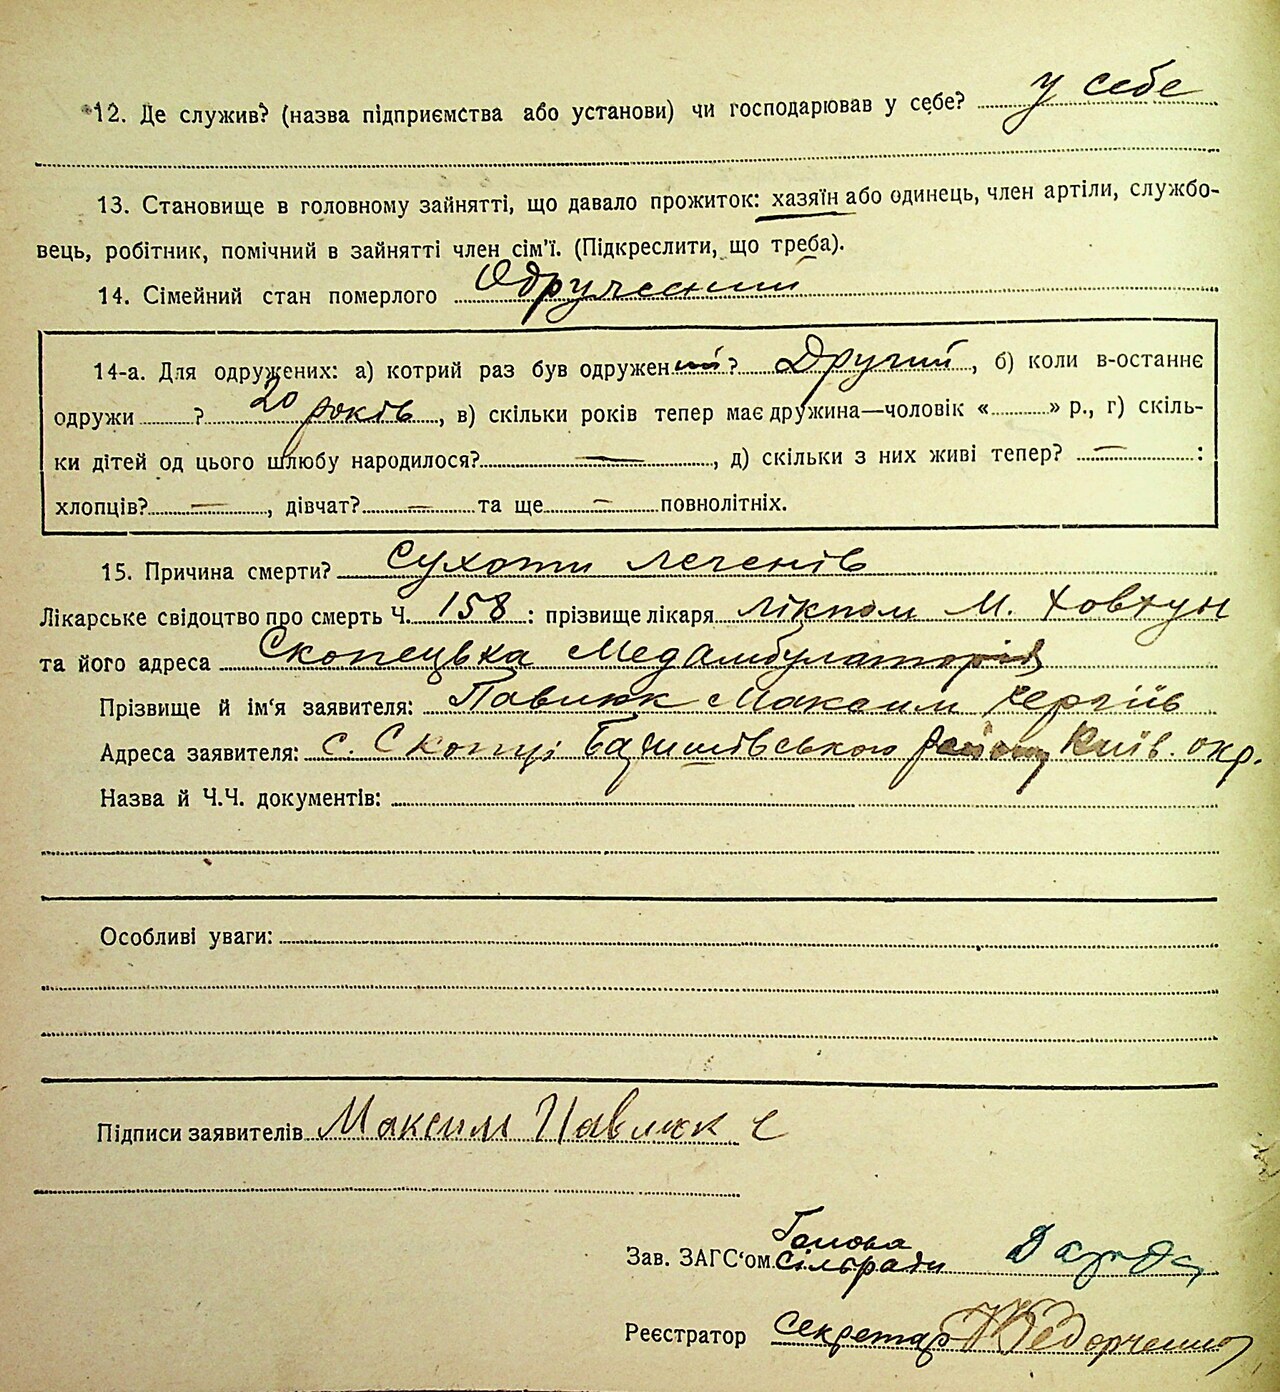 12. Де служив? (назва підприємства або установи) чи господарював у себе? у себе
13. Становище в головному зайнятті, що давало прожиток: хазяїн або одинець, член артіли, службо-
вець, робітник, помічний в зайнятті член сім'ї. (Підкреслити, що треба).
14. Сімейний стан померлого Одружений
14-а. Для одружених: а) котрий раз був одружений? Другий, б) коли в-останнє
одружи ? 20 років, в) скільки років тепер має дружина—чоловік « » р., г) скіль-
ки дітей од цього шлюбу народилося? —, д) скільки з них живі тепер? — :
хлопців? —, дівчат? — та ще — повнолітніх.
15. Причина смерти? Сухоти легенів
Лікарське свідоцтво про смерть Ч. 158 : прізвище лікаря лікпом М. Ховтун
та його адреса Скопецька Медамбулаторія
Прізвище й ім'я заявителя: Павлюк Максим Сергіїв
Адреса заявителя: с. Скопці Баришівського району Київ. окр.
Назва й Ч.Ч. документів:
Особливі уваги:
Підписи заявителів Максим Павлюк С
Зав. ЗАГС'ом Голова
сільради
Реєстратор Секретар Федорченко